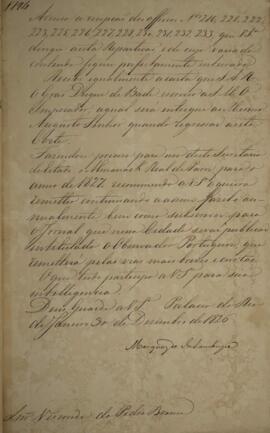 Accuso a recepção dos officios Nos 216, 221, 222,
223, 225, 226, 227, 228, 231, 232, 233, que V.Sa
dirigio a esta Repartição, e de cujo variado
contheudo fiquei perfeitamente inteirado.
Recebi igualmente a carta que S. A. R.
o Gram Duque de Bade enviou a S. M. O
Imperador, a qual será entregue ao Mesmo
Augusto Senhor quando regressar a esta
Corte.
Fazendo-se preciso para uso desta Secretaria
de Estado o Almanack Real de Paris para o
anno de 1827 recommendo a V.Sa queira
remetter continuando a assim fazelo an-
nualmente bem como subscrever para
o Jornal que nessa Cidade se vai publicar
intitulado o Observador Portuguez, que
remetterá pelas vias mais breves
O que tudo participo a V.S. para sua
intelligencia.
Deos Guarde a V.S. Palacio do Rio
de Janeiro 30 de Dezembro de 1826
Marquez de Inhambupe
Snr Visconde da Pedra Branca